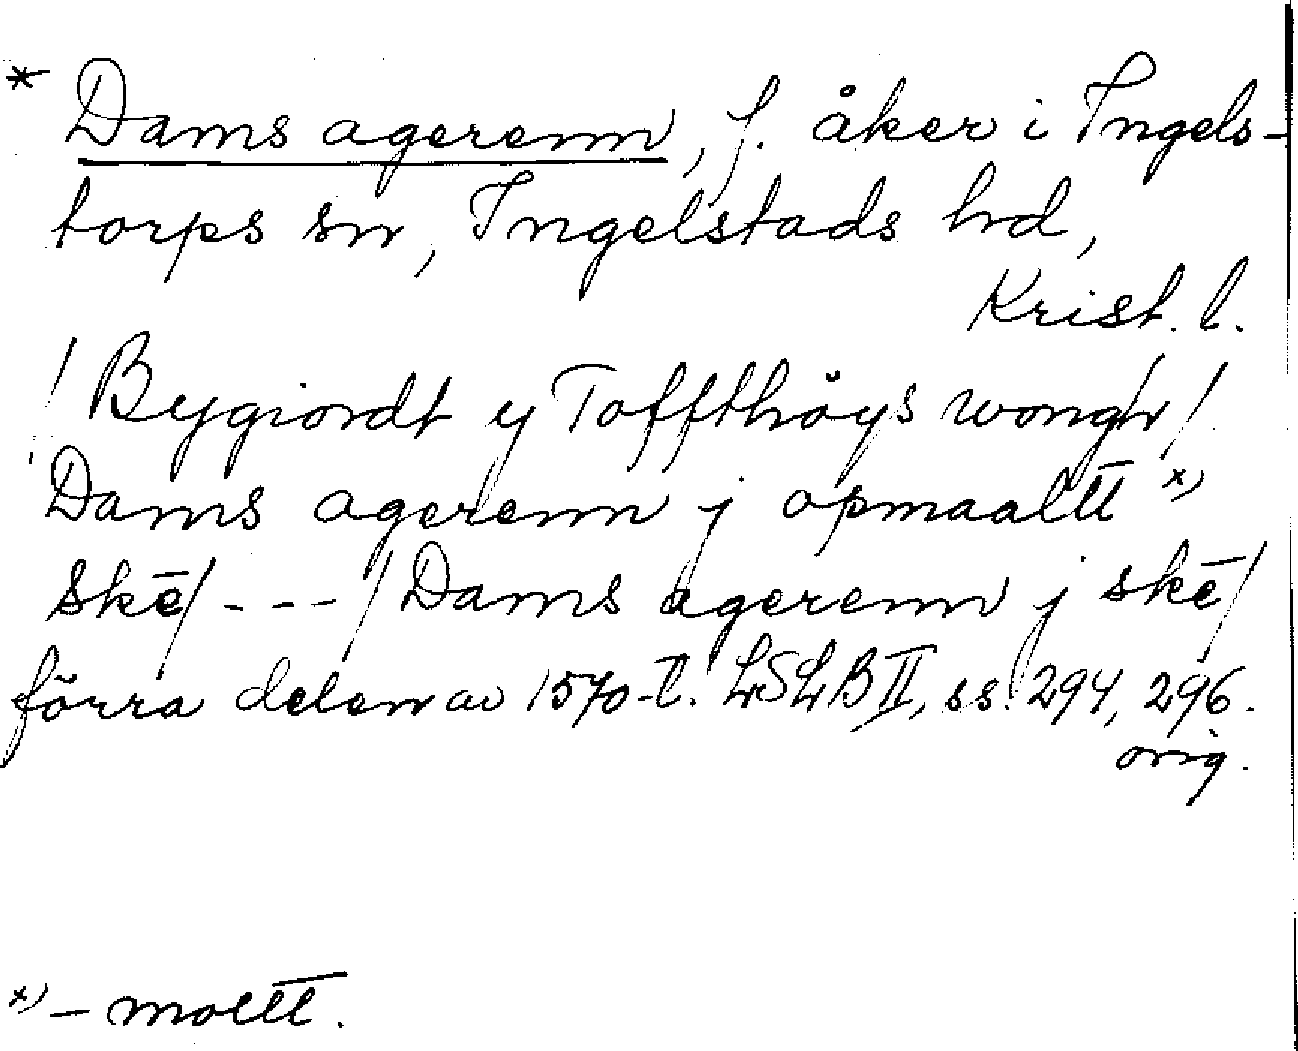 * Dams agerenn, f. åker i Ingels-
torps sn, Ingelstads hd,
Krist. l.
/ Bygiordt y Toffthöys wongh /
Dams agerenn j opmaaltt x)
skē / - - - / Dams agerenn j skē /
förra delen av 1570-t. LSLB II, ss. 294, 296.
orig.
x) – moltt.